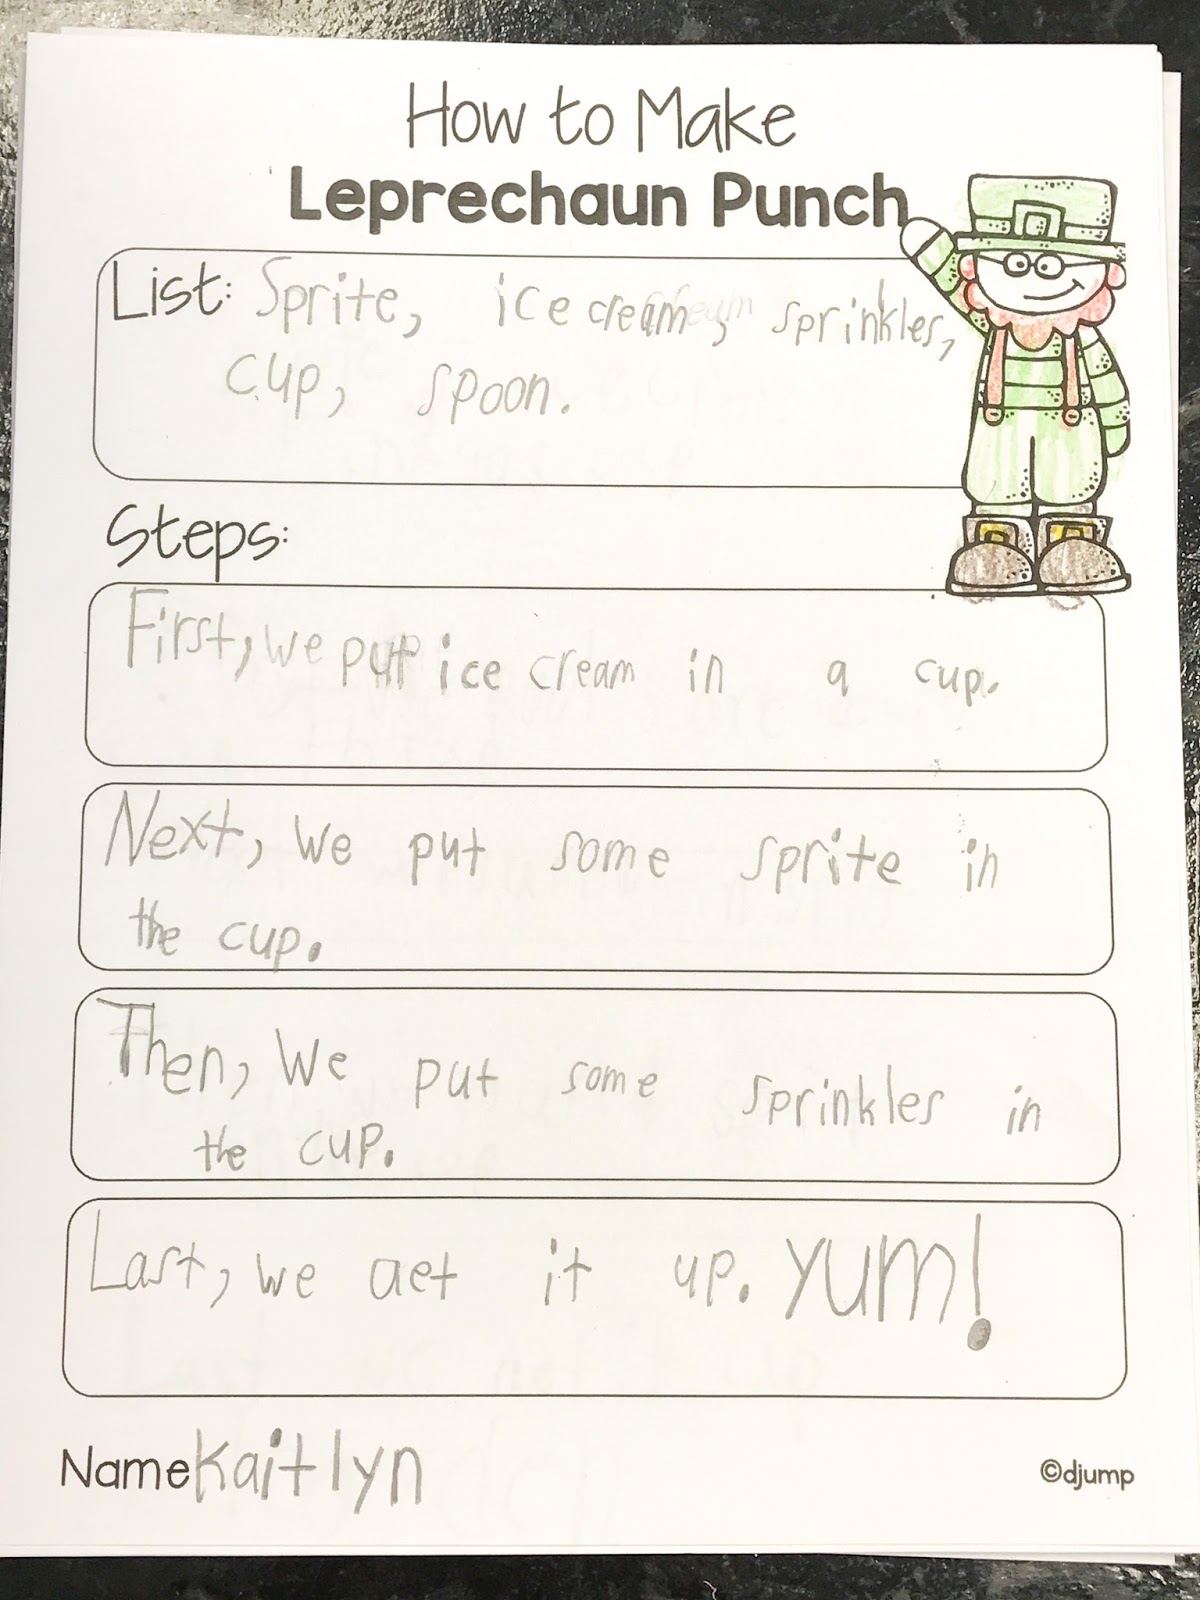 How to Make
Leprechaun Punch
List: Sprite, ice cream, sprinkles,
cup, spoon.
Steps:
First, we put ice cream in a cup.
Next, we put some sprite in
the cup.
Then, we put some sprinkles in
the cup.
Last, we aet it up. Yum!
Name Kaitlyn
©djump